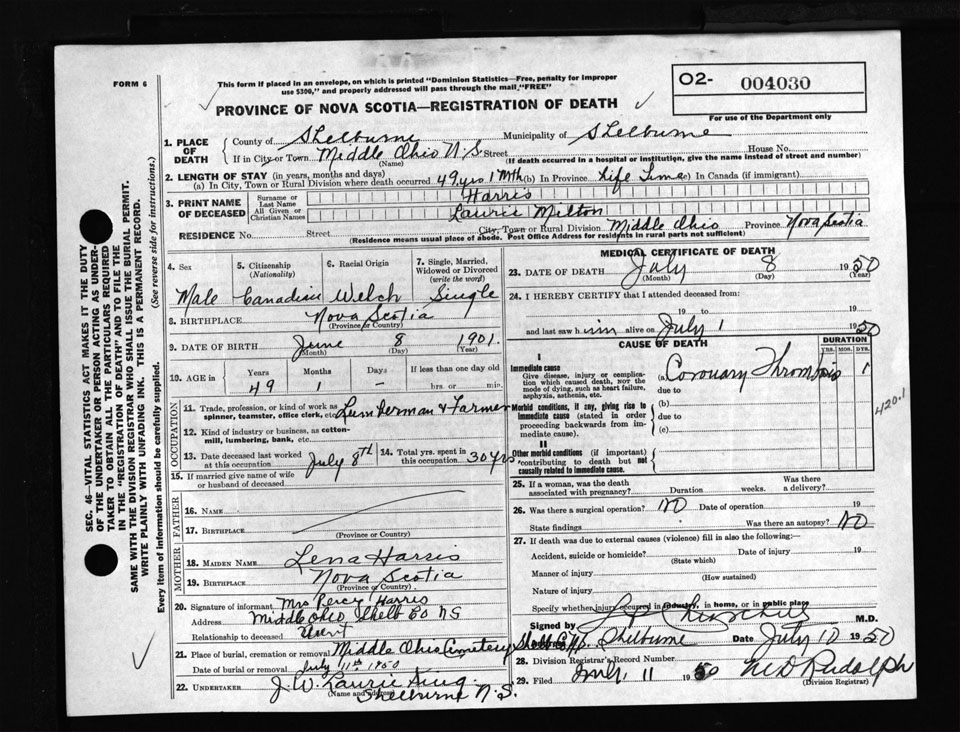 FORM 6
This form if placed in an envelope, on which is printed "Dominion Statistics—Free, penalty for improper
use $300," and properly addressed will pass through the mail "FREE"
PROVINCE OF NOVA SCOTIA—REGISTRATION OF DEATH
O2- 004030
For use of the Department only
SEC. 46—VITAL STATISTICS ACT MAKES IT THE DUTY
OF THE UNDERTAKER OR PERSON ACTING AS UNDER-
TAKER TO OBTAIN ALL THE PARTICULARS REQUIRED
IN THE "REGISTRATION OF DEATH" AND TO FILE THE
SAME WITH THE DIVISION REGISTRAR WHO SHALL ISSUE THE BURIAL PERMIT.
WRITE PLAINLY WITH UNFADING INK. THIS IS A PERMANENT RECORD.
Every item of information should be carefully supplied. (See reverse side for instructions.)
1. PLACE OF DEATH
County of Shelburne Municipality of Shelburne
If in City or Town Middle Ohio N.S. Street House No.
(Name) (If death occurred in a hospital or institution, give the name instead of street and number)
2. LENGTH OF STAY (in years, months and days)
(a) In City, Town or Rural Division where death occurred 49 yrs 1 Mth (b) In Province Life Time (c) In Canada (if immigrant)
3. PRINT NAME OF DECEASED
Surname or Last Name Harris
All Given or Christian Names Laurie Milton
RESIDENCE No. Street City, Town or Rural Division Middle Ohio Province Nova Scotia
(Residence means usual place of abode. Post Office Address for residents in rural parts not sufficient)
4. Sex Male
5. Citizenship (Nationality) Canadian
6. Racial Origin Welch
7. Single, Married, Widowed or Divorced (write the word) Single
8. BIRTHPLACE Nova Scotia
(Province or Country)
9. DATE OF BIRTH June 8 1901
(Month) (Day) (Year)
10. AGE in Years Months Days If less than one day old
49 1 - hrs. or min.
OCCUPATION
11. Trade, profession, or kind of work as spinner, teamster, office clerk, etc. Lumberman & Farmer
12. Kind of industry or business, as cotton-mill, lumbering, bank, etc.
13. Date deceased last worked at this occupation July 8th
14. Total yrs. spent in this occupation 30 yrs
15. If married give name of wife or husband of deceased
FATHER
16. NAME
17. BIRTHPLACE
(Province or Country)
MOTHER
18. MAIDEN NAME Lena Harris
19. BIRTHPLACE Nova Scotia
(Province or Country)
20. Signature of informant Mrs Percy Harris
Address Middle Ohio Shelb Co NS
Relationship to deceased Aunt
21. Place of burial, cremation or removal Middle Ohio Cemetery Shelb Co NS
Date of burial or removal July 11th 1950
22. UNDERTAKER
Shelburne N.S.
(Name and address)
MEDICAL CERTIFICATE OF DEATH
23. DATE OF DEATH July 8 1950
(Month) (Day) (Year)
24. I HEREBY CERTIFY that I attended deceased from
19 to 19
and last saw him alive on July 1 1950
CAUSE OF DEATH
DURATION
YRS. MOS. DYS.
I
Immediate cause
Give disease, injury or complication which caused death, not the mode of dying, such as heart failure, asphyxia, asthenia, etc.
(a) Coronary Thrombosis 1
due to
Morbid conditions, if any, giving rise to immediate cause (stated in order proceeding backwards from immediate cause).
(b)
due to
(c)
420.1
II
Other morbid conditions (if important) contributing to death but not causally related to immediate cause.
25. If a woman, was the death associated with pregnancy? Duration weeks. Was there a delivery?
26. Was there a surgical operation? NO Date of operation 19
State findings Was there an autopsy? NO
27. If death was due to external causes (violence) fill in also the following:
Accident, suicide or homicide? Date of injury 19
(State which)
Manner of injury
(How sustained)
Nature of injury
Specify whether injury occurred in industry, in home, or in public place
Signed by M.D.
Shelburne Date July 10 1950
28. Division Registrar's Record Number
29. Filed July 11 1950 M D Rudolph
(Division Registrar)